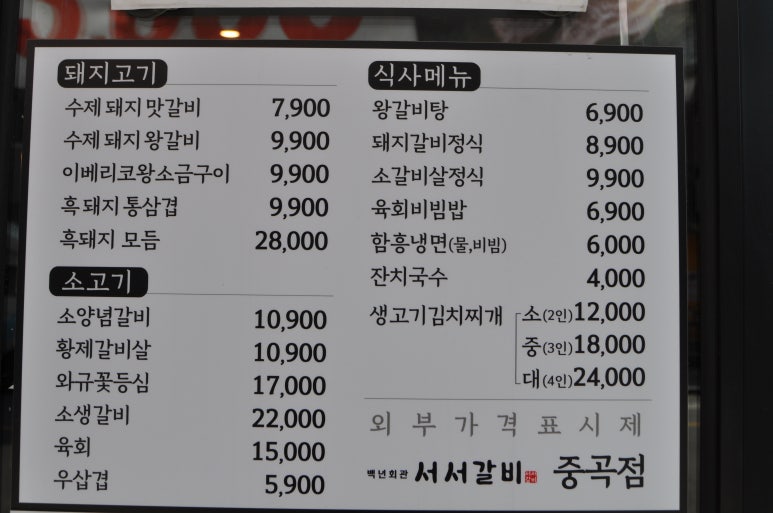 돼지고기
수제 돼지 맛갈비 7,900
수제 돼지 왕갈비 9,900
이베리코왕소금구이 9,900
흑돼지 통삼겹 9,900
흑돼지 모듬 28,000
소고기
소양념갈비 10,900
황제갈비살 10,900
와규꽃등심 17,000
소생갈비 22,000
육회 15,000
우삼겹 5,900
식사메뉴
왕갈비탕 6,900
돼지갈비정식 8,900
소갈비살정식 9,900
육회비빔밥 6,900
함흥냉면(물,비빔) 6,000
잔치국수 4,000
생고기김치찌개 소(2인)12,000
중(3인)18,000
대(4인)24,000
외부가격표시제
백년회관 서서갈비 중곡점